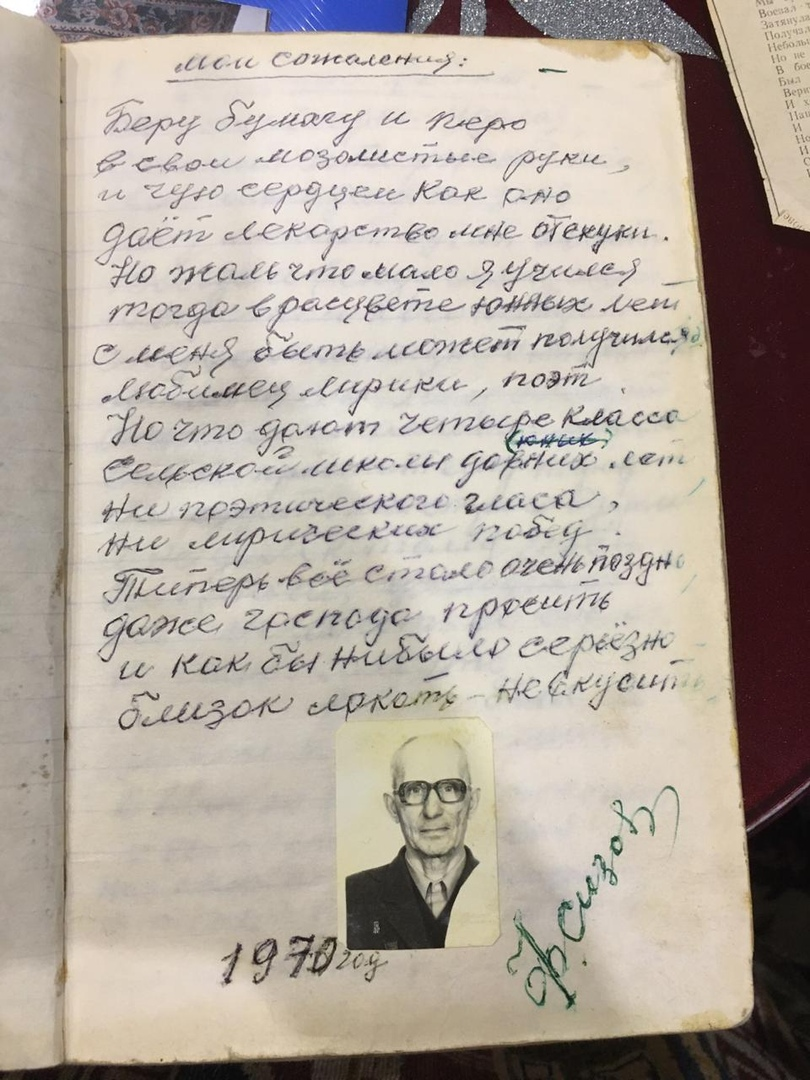 мои сожаления:
Беру бумагу и перо
в свои мозолистые руки,
и чую сердцем как оно
даёт лекарство мне от скуки.
Но жаль что мало я учился
тогда в расцвете юнных лет
с меня быть может получился
любимец лирики, поэт.
Но что дают четыре класса
(юных)
сельской школы давних лет
ни поэтического гласа,
ни лирических побед.
Типерь всё стало очень поздно
даже господа просить
и как бы нибыло серьёзно
близок локоть - не вкусить
1970 год
Ф. Сизов
Воевал
Затянул
Получал
Но не
В бое
Был
И
И